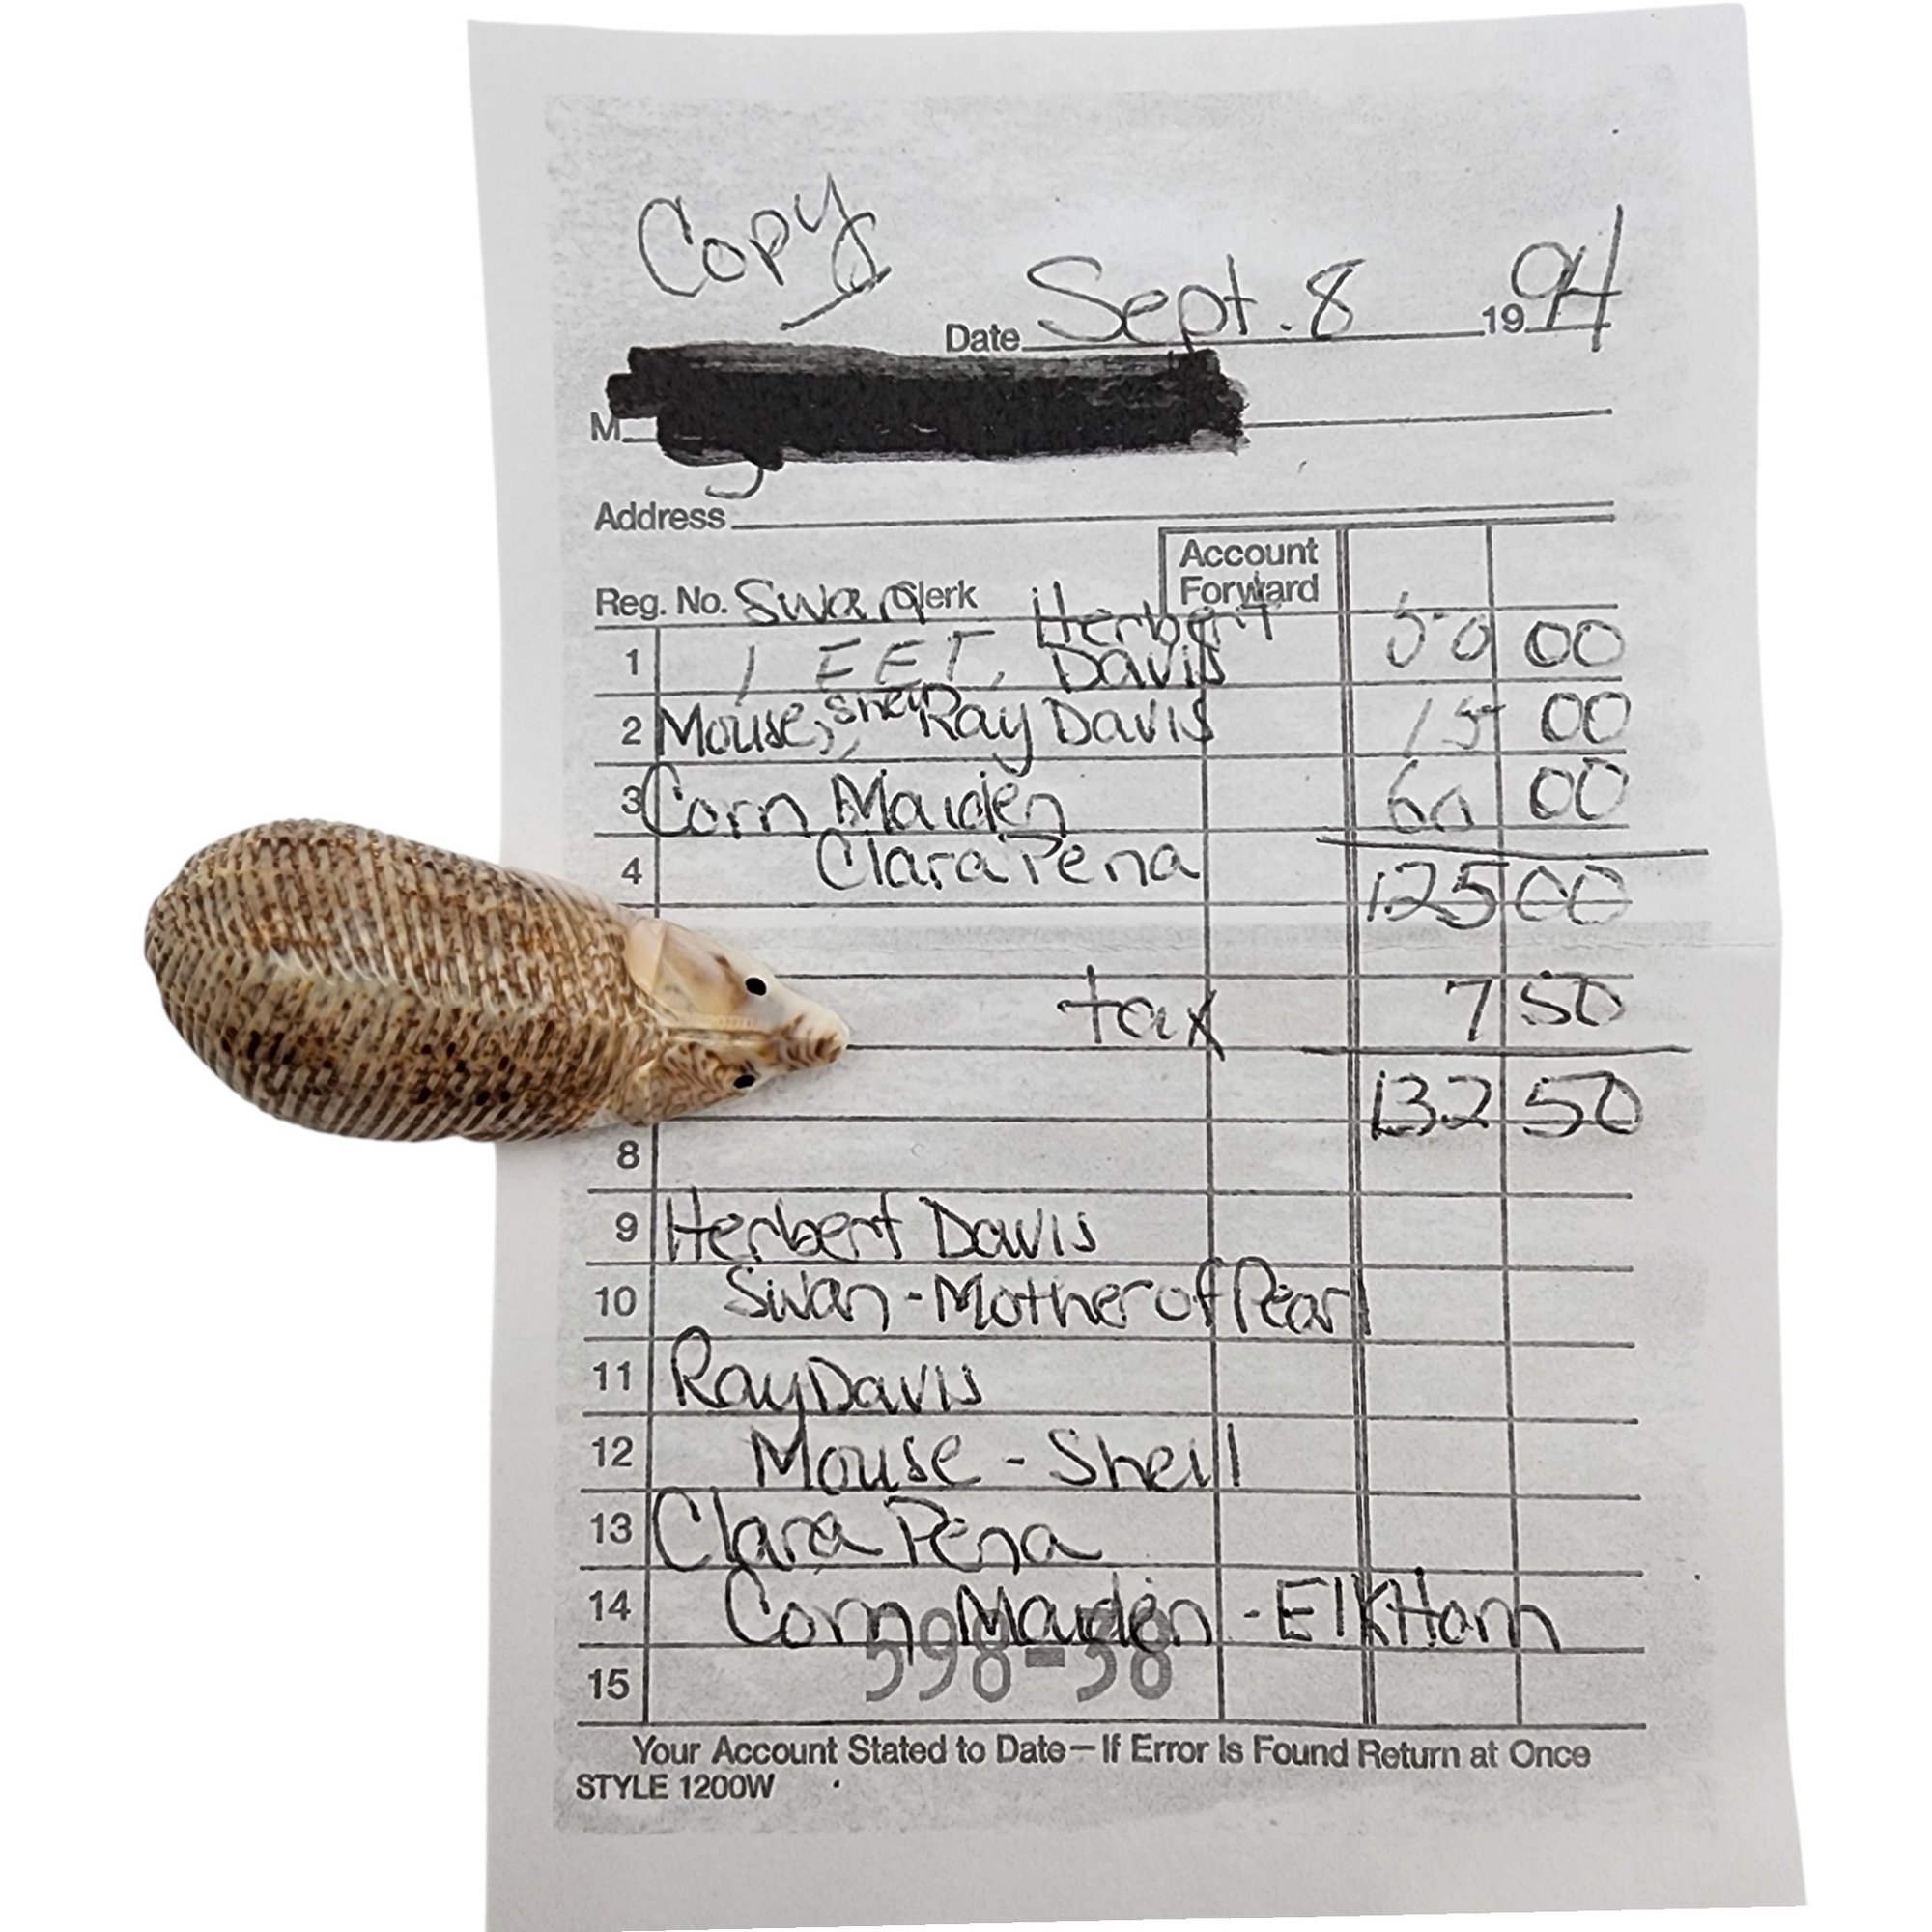 Copy
Date Sept. 8 1994
M
Address
Account Forward
Reg. No. Swan Clerk Herbert
1 Davis 50 00
2 Mouse, Shell Ray Davis 15 00
3 Corn Maiden 60 00
4 Clara Pena 125 00
tax 7 50
132 50
8
9 Herbert Davis
10 Swan - Mother of Pearl
11 Ray Davis
12 Mouse - Shell
13 Clara Pena
14 Corn Maiden - Elk Horn
598-38
15
Your Account Stated to Date - If Error Is Found Return at Once
STYLE 1200W